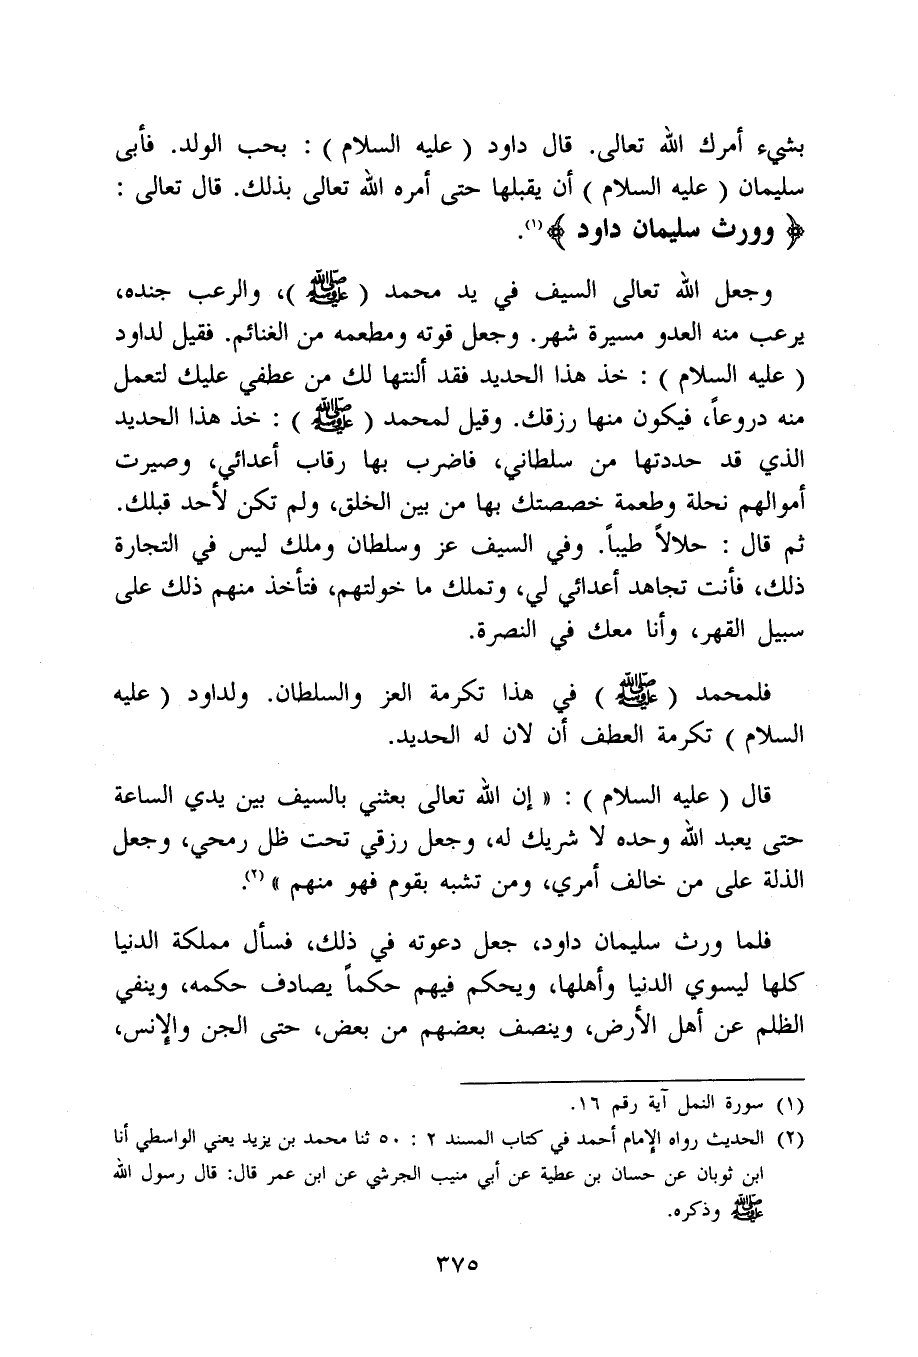 بشيء أمرك الله تعالى. قال داود ( عليه السلام ) : بحب الولد. فأبى
سليمان ( عليه السلام ) أن يقبلها حتى أمره الله تعالى بذلك. قال تعالى :
﴿ وورث سليمان داود ﴾(١).
وجعل الله تعالى السيف في يد محمد ( ﷺ )، والرعب جنده،
يرعب منه العدو مسيرة شهر. وجعل قوته ومطعمه من الغنائم. فقيل لداود
( عليه السلام ) : خذ هذا الحديد فقد ألنتها لك من عطفي عليك لتعمل
منه دروعاً، فيكون منها رزقك. وقيل لمحمد ( ﷺ ) : خذ هذا الحديد
الذي قد حددتها من سلطاني، فاضرب بها رقاب أعدائي، وصيرت
أموالهم نحلة وطعمة خصصتك بها من بين الخلق، ولم تكن لأحد قبلك.
ثم قال : حلالاً طيباً. وفي السيف عز وسلطان وملك ليس في التجارة
ذلك، فأنت تجاهد أعدائي لي، وتملك ما خولتهم، فتأخذ منهم ذلك على
سبيل القهر، وأنا معك في النصرة.
فلمحمد ( ﷺ ) في هذا تكرمة العز والسلطان. ولداود ( عليه
السلام ) تكرمة العطف أن لان له الحديد.
قال ( عليه السلام ) : « إن الله تعالى بعثني بالسيف بين يدي الساعة
حتى يعبد الله وحده لا شريك له، وجعل رزقي تحت ظل رمحي، وجعل
الذلة على من خالف أمري، ومن تشبه بقوم فهو منهم »(٢).
فلما ورث سليمان داود، جعل دعوته في ذلك، فسأل مملكة الدنيا
كلها ليسوي الدنيا وأهلها، ويحكم فيهم حكماً يصادف حكمه، وينفي
الظلم عن أهل الأرض، وينصف بعضهم من بعض، حتى الجن والإنس،
(١) سورة النمل آية رقم ١٦.
(٢) الحديث رواه الإمام أحمد في كتاب المسند ٢ : ٥٠ ثنا محمد بن يزيد يعني الواسطي أنا
ابن ثوبان عن حسان بن عطية عن أبي منيب الجرشي عن ابن عمر قال: قال رسول الله
ﷺ وذكره.
٣٧٥